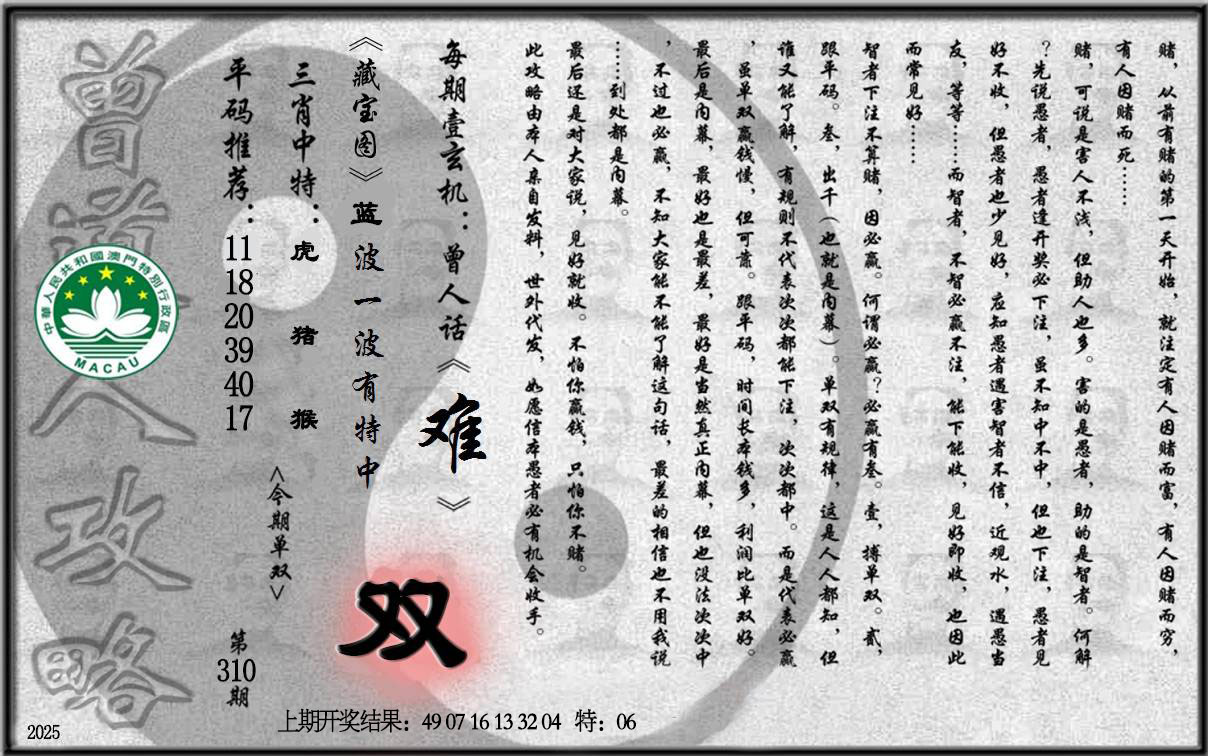 赌，从前有赌的第一天开始，就注定有人因赌而富，有人因赌而穷，
有人因赌而死……
赌，可说是害人不浅，但助人也多。害的是愚者，助的是智者。何解
？先说愚者，愚者逢开奖必下注，虽不知中不中，但也下注，愚者见
好不收，但愚者也少见好，应知愚者遇害智者不信，近观水，遇愚当
友，等等……而智者，不智必赢不注，能下能收，见好即收，也因此
而常见好……
智者下注不算赌，因必赢。何谓必赢？必赢有叁。壹，搏单双。贰，
跟平码。叁，出千（也就是内幕）。单双有规律，这是人人都知，但
谁又能了解，有规则不代表次次都能下注，次次都中。而是代表必赢
，虽单双赢钱慢，但可靠。跟平码，时间长本钱多，利润比单双好。
最后是内幕，最好也是最差，最好是当然真正内幕，但也没法次次中
，不过也必赢，不知大家能不能了解这句话，最差的相信也不用我说
……到处都是内幕。
最后还是对大家说，见好就收。不怕你赢钱，只怕你不赌。
此攻略由本人亲自发料，世外代发，如愿信本愚者必有机会收手。
每期壹玄机：曾人话《难》
《藏宝图》蓝波一波有特中
双
三肖中特：虎 猪 猴
<今期单双>
平码推荐：11 18 20 39 40 17
第310期
曾道人攻略
中華人民共和國澳門特別行政區
MACAU
上期开奖结果：49 07 16 13 32 04 特：06
2025